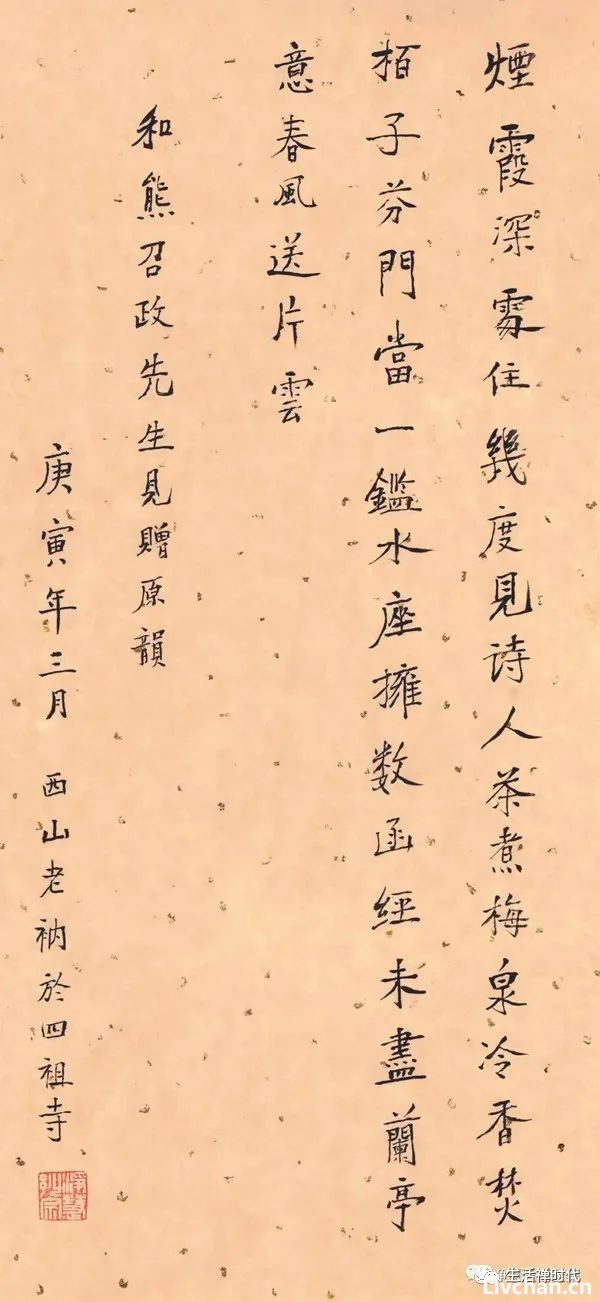 煙霞深處住幾度見诗人茶煮梅泉冷香焚
栢子芬門當一鑑水座擁数函經未盡蘭亭
意春風送片雲
和熊召政先生見贈原韻
庚寅年三月 西山老衲於四祖寺
生活禅时代
Livchan.cn